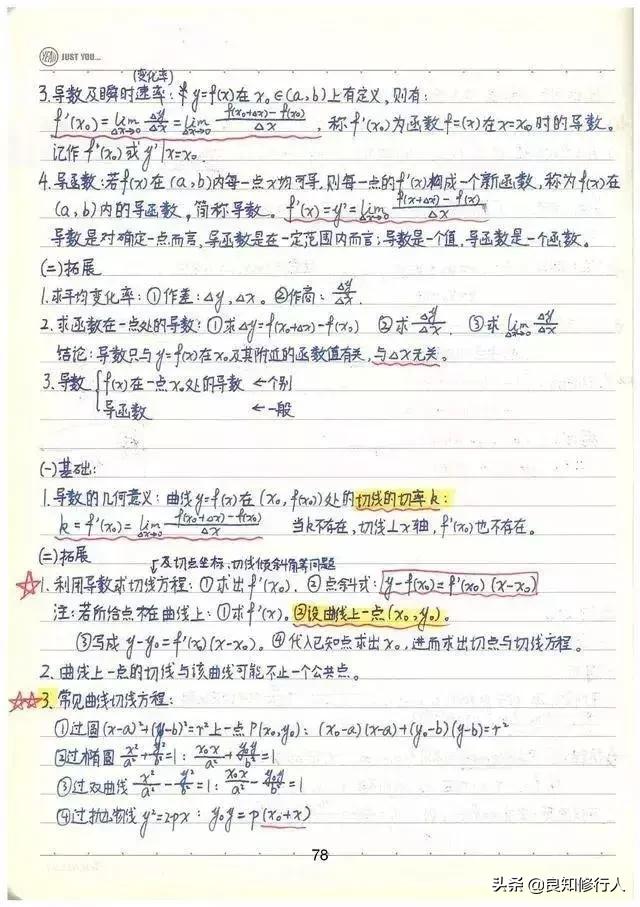 YEAH JUST YOU...
(变化率)
3.导数及瞬时速率:若y=f(x)在x₀∈(a,b)上有定义,则有:
f'(x₀)=lim Δx→0 Δy/Δx=lim Δx→0 f(x₀+Δx)-f(x₀)/Δx,称f'(x₀)为函数f=(x)在x=x₀时的导数。
记作f'(x₀)或y'|x=x₀.
4.导函数:若f(x)在(a,b)内每一点x均可导,则每一点的f'(x)构成一个新函数,称为f(x)在
(a,b)内的导函数,简称导数。f'(x)=y'=lim Δx→0 f(x+Δx)-f(x)/Δx
导数是对确定一点而言,导函数是在一定范围内而言;导数是一个值,导函数是一个函数。
(二)拓展
1.求平均变化率:①作差:Δy,Δx。②作商:Δy/Δx.
2.求函数在一点处的导数:①求Δy=f(x₀+Δx)-f(x₀) ②求Δy/Δx. ③求lim Δx→0 Δy/Δx
结论:导数只与y=f(x)在x₀及其附近的函数值有关,与Δx无关。
3.导数{f(x)在一点x₀处的导数 ←个别
导函数 ←一般
(一)基础:
1.导数的几何意义:曲线y=f(x)在(x₀,f(x₀))处的切线的切率k:
k=f'(x₀)=lim Δx→0 f(x₀+Δx)-f(x₀)/Δx 当k不存在,切线⊥x轴,f'(x₀)也不存在。
(二)拓展
及切点坐标、切线倾斜角等问题
☆1.利用导数求切线方程:①求出f'(x₀).②点斜式:y-f(x₀)=f'(x₀)(x-x₀)
注:若所给点不在曲线上:①求f'(x)。②设曲线上一点(x₀,y₀)。
③写成y-y₀=f'(x₀)(x-x₀)。④代入已知点求出x₀,进而求出切点与切线方程。
2.曲线上一点的切线与该曲线可能不止一个公共点。
☆☆3.常见曲线切线方程:
①过圆(x-a)²+(y-b)²=r²上一点P(x₀,y₀):(x₀-a)(x-a)+(y₀-b)(y-b)=r²
②过椭圆x²/a²+y²/b²=1:x₀x/a²+y₀y/b²=1
③过双曲线x²/a²-y²/b²=1:x₀x/a²-y₀y/b²=1
④过抛物线y²=2px:y₀y=p(x₀+x)
78
头条@良知修行人